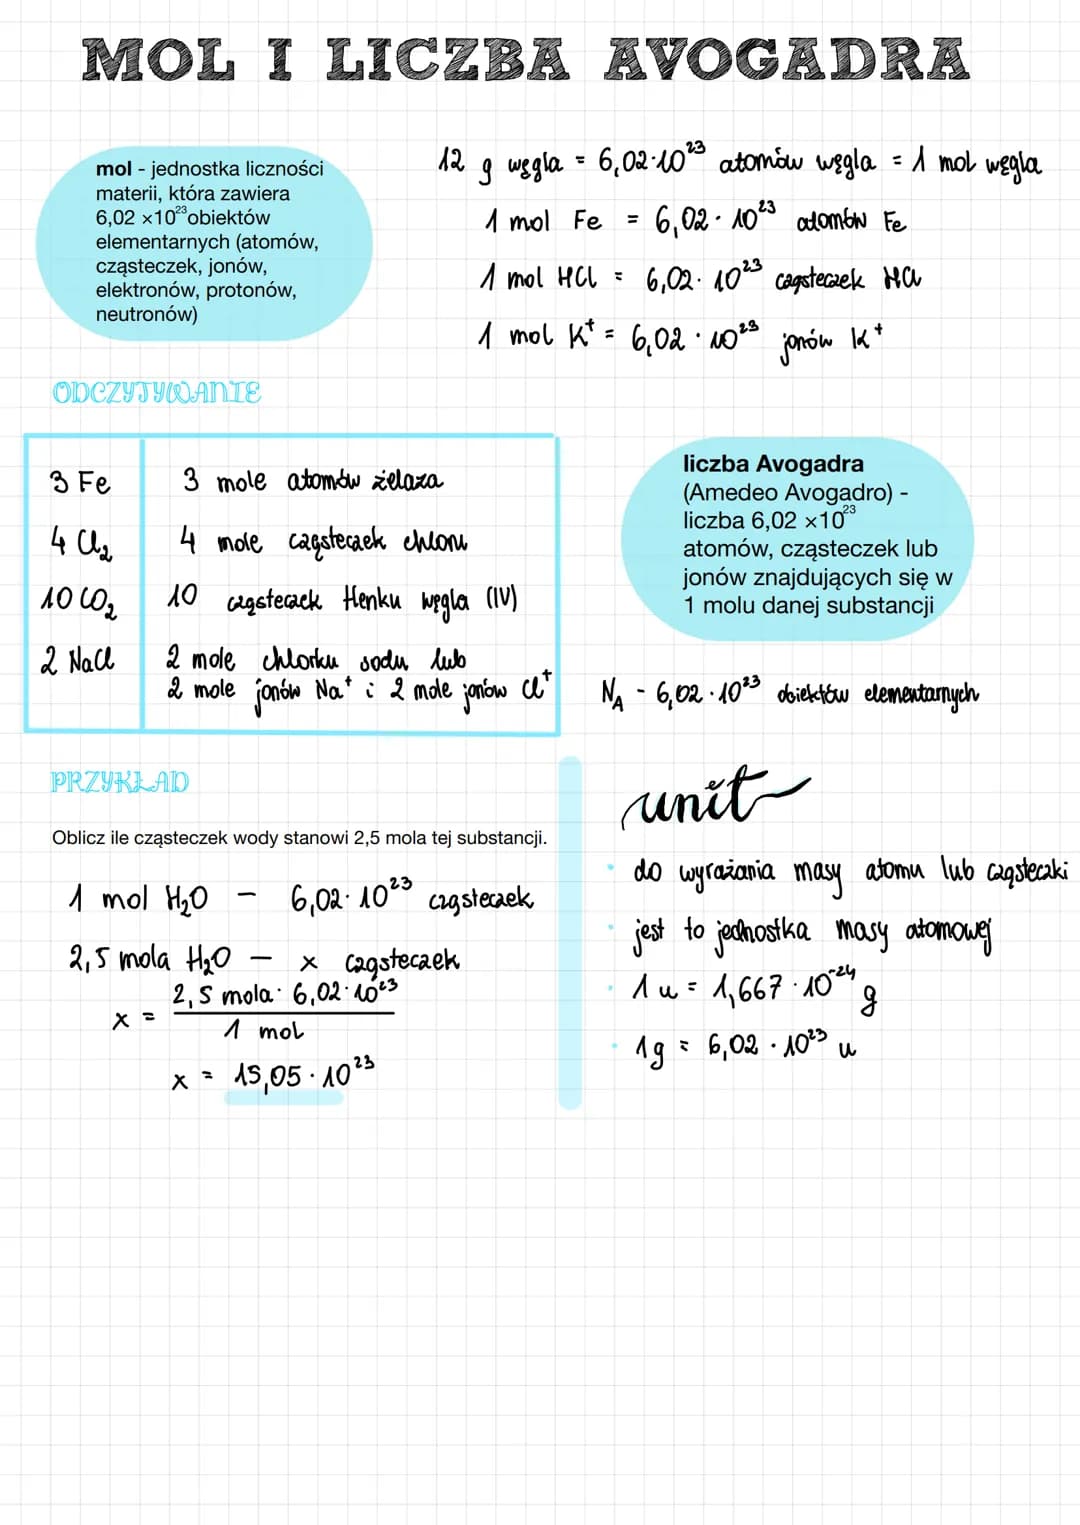 MOL I LICZBA AVOGADRA
mol - jednostka liczności
materii, która zawiera
6,02 ×10²³ obiektów
elementarnych (atomów,
cząsteczek, jonów,
elektronów, protonów,
neutronów)
12 g węgla = 6,02·10²³ atomów węgla = 1 mol węgla
1 mol Fe = 6,02 · 10²³ atomów Fe
1 mol HCl = 6,02 · 10²³ cząsteczek HCl
1 mol K⁺ = 6,02 · 10²³ jonów K⁺
ODCZYTYWANIE
3 Fe 3 mole atomów żelaza
4 Cl₂ 4 mole cząsteczek chloru
10 CO₂ 10 cząsteczek tlenku węgla (IV)
2 NaCl 2 mole chlorku sodu lub
2 mole jonów Na⁺ i 2 mole jonów Cl⁺
liczba Avogadra
(Amedeo Avogadro) -
liczba 6,02 ×10²³
atomów, cząsteczek lub
jonów znajdujących się w
1 molu danej substancji
N_A - 6,02 · 10²³ obiektów elementarnych
PRZYKŁAD
Oblicz ile cząsteczek wody stanowi 2,5 mola tej substancji.
1 mol H₂O - 6,02 · 10²³ cząsteczek
2,5 mola H₂O - x cząsteczek
x = 2,5 mola · 6,02 · 10²³
1 mol
x = 15,05 · 10²³
unit
• do wyrażania masy atomu lub cząsteczki
• jest to jednostka masy atomowej
• 1 u = 1,667 · 10⁻²⁴ g
• 1g = 6,02 · 10²³ u